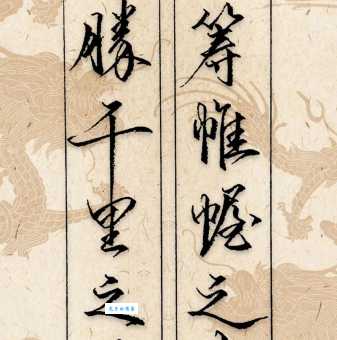 筹帷幄之
勝千里之